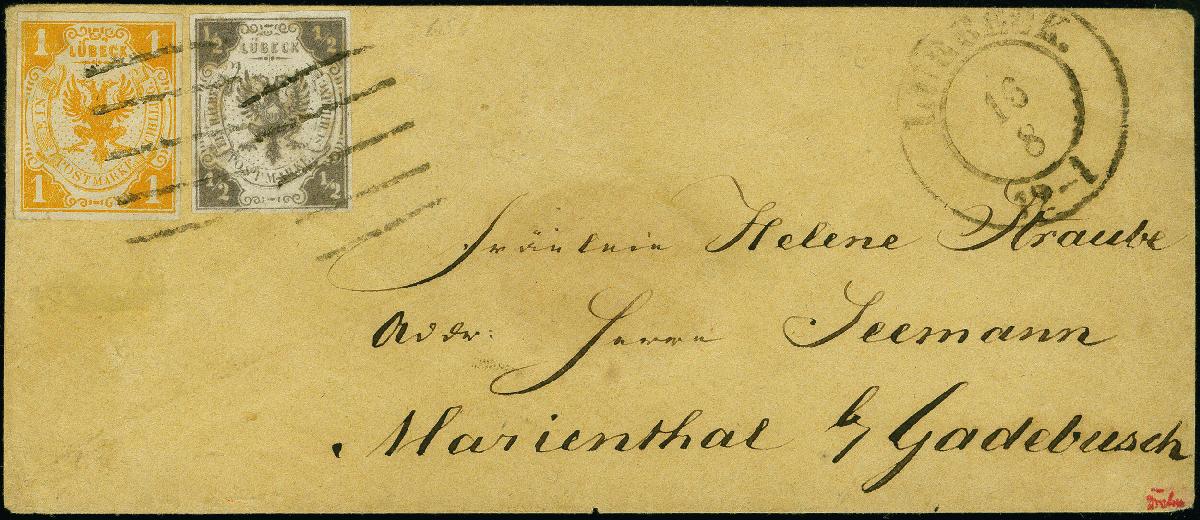 1 1
LÜBECK
POSTMARKE
1 1
½ ½
LÜBECK
POSTMARKE
½ ½
LUEBECK.
16
8
12-1
Fräulein Helene Straube
Addr: Herrn Seemann
Marienthal b/ Gadebusch